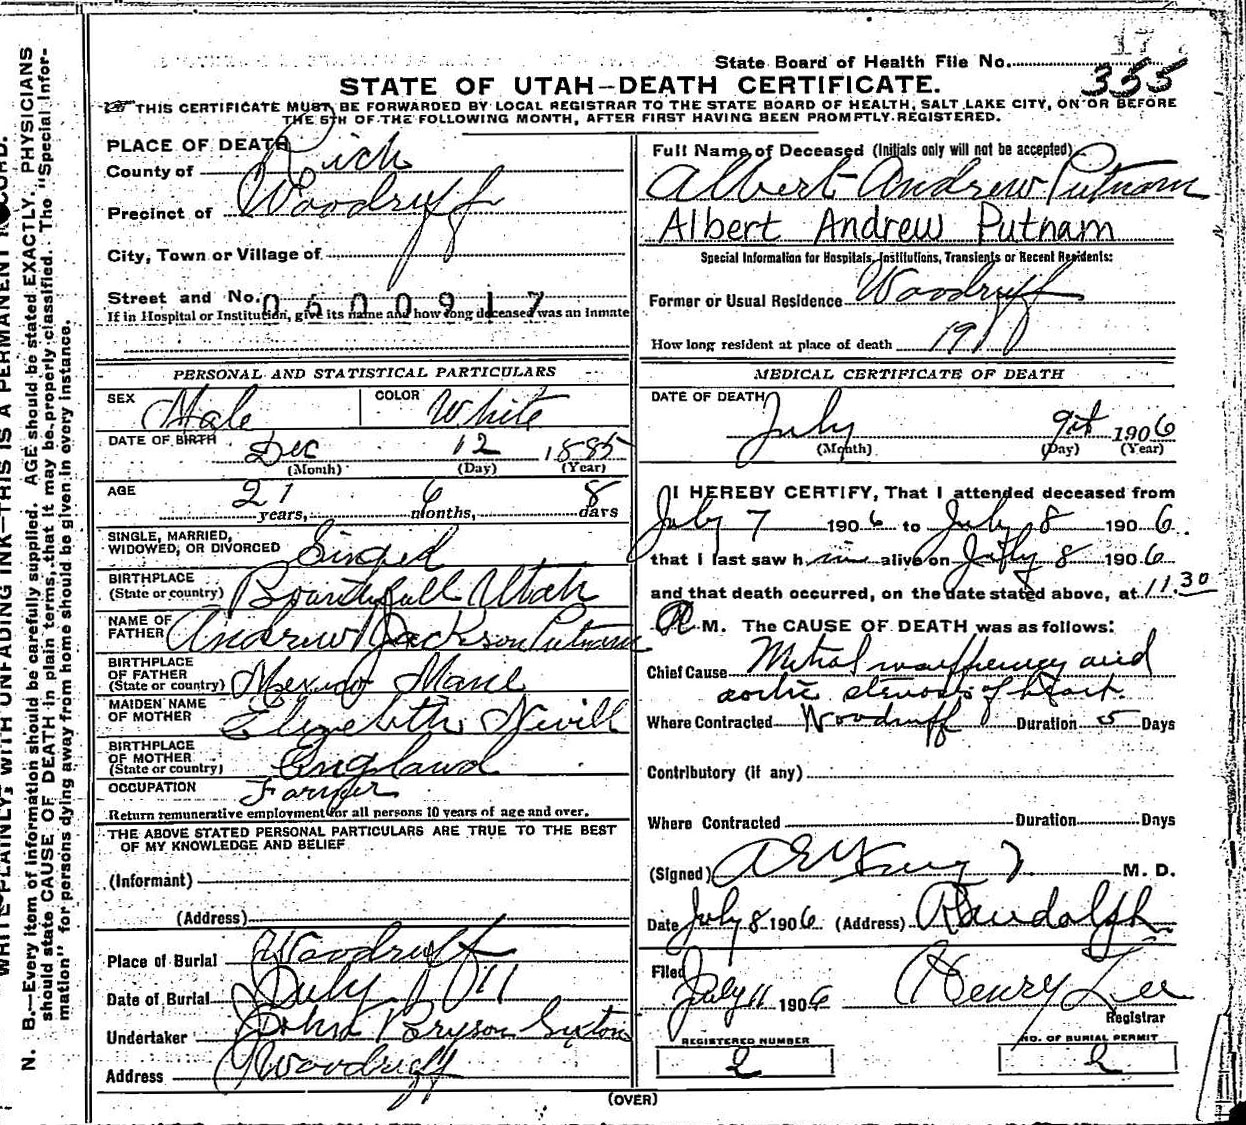 17
State Board of Health File No. 355
STATE OF UTAH—DEATH CERTIFICATE.
THIS CERTIFICATE MUST BE FORWARDED BY LOCAL REGISTRAR TO THE STATE BOARD OF HEALTH, SALT LAKE CITY, ON OR BEFORE
THE 5TH OF THE FOLLOWING MONTH, AFTER FIRST HAVING BEEN PROMPTLY REGISTERED.
PLACE OF DEATH
County of Rich
Precinct of Woodruff
City, Town or Village of
Street and No. 0600917
If in Hospital or Institution, give its name and how long deceased was an Inmate
PERSONAL AND STATISTICAL PARTICULARS
SEX Male COLOR White
DATE OF BIRTH Dec 12 1885
(Month) (Day) (Year)
AGE 21 6 8
years, months, days
SINGLE, MARRIED,
WIDOWED, OR DIVORCED Singel
BIRTHPLACE
(State or country) Bountyfull Utah
NAME OF
FATHER Andrew Jackson Putnam
BIRTHPLACE
OF FATHER
(State or country) Mexico Maine
MAIDEN NAME
OF MOTHER Elizebeth Nevill
BIRTHPLACE
OF MOTHER
(State or country) England
OCCUPATION Farmer
Return remunerative employment for all persons 10 years of age and over.
THE ABOVE STATED PERSONAL PARTICULARS ARE TRUE TO THE BEST
OF MY KNOWLEDGE AND BELIEF
(Informant)
(Address)
Place of Burial Woodruff
Date of Burial July 11
Undertaker John Bryson Sexton
Address Woodruff
Full Name of Deceased (Initials only will not be accepted)
Albert Andrew Putnam
Albert Andrew Putnam
Special Information for Hospitals, Institutions, Transients or Recent Residents:
Former or Usual Residence Woodruff
How long resident at place of death 19
MEDICAL CERTIFICATE OF DEATH
DATE OF DEATH
July 9th 1906
(Month) (Day) (Year)
I HEREBY CERTIFY, That I attended deceased from
July 7 1906 to July 8 1906
that I last saw him alive on July 8 1906
and that death occurred, on the date stated above, at 11.30
P M. The CAUSE OF DEATH was as follows:
Chief Cause Mitral insufficiency and
aortic stenosis of heart.
Where Contracted Woodruff Duration 5 Days
Contributory (if any)
Where Contracted Duration Days
(Signed) M. D.
Date July 8 1906 (Address) Randolph
Filed
July 11 1906 Henry Lee
Registrar
REGISTERED NUMBER
2
NO. OF BURIAL PERMIT
2
(OVER)
WRITE PLAINLY, WITH UNFADING INK—THIS IS A PERMANENT RECORD.
N. B.—Every item of information should be carefully supplied. AGE should be stated EXACTLY. PHYSICIANS
should state CAUSE OF DEATH in plain terms, that it may be properly classified. The "Special Infor-
mation" for persons dying away from home should be given in every instance.